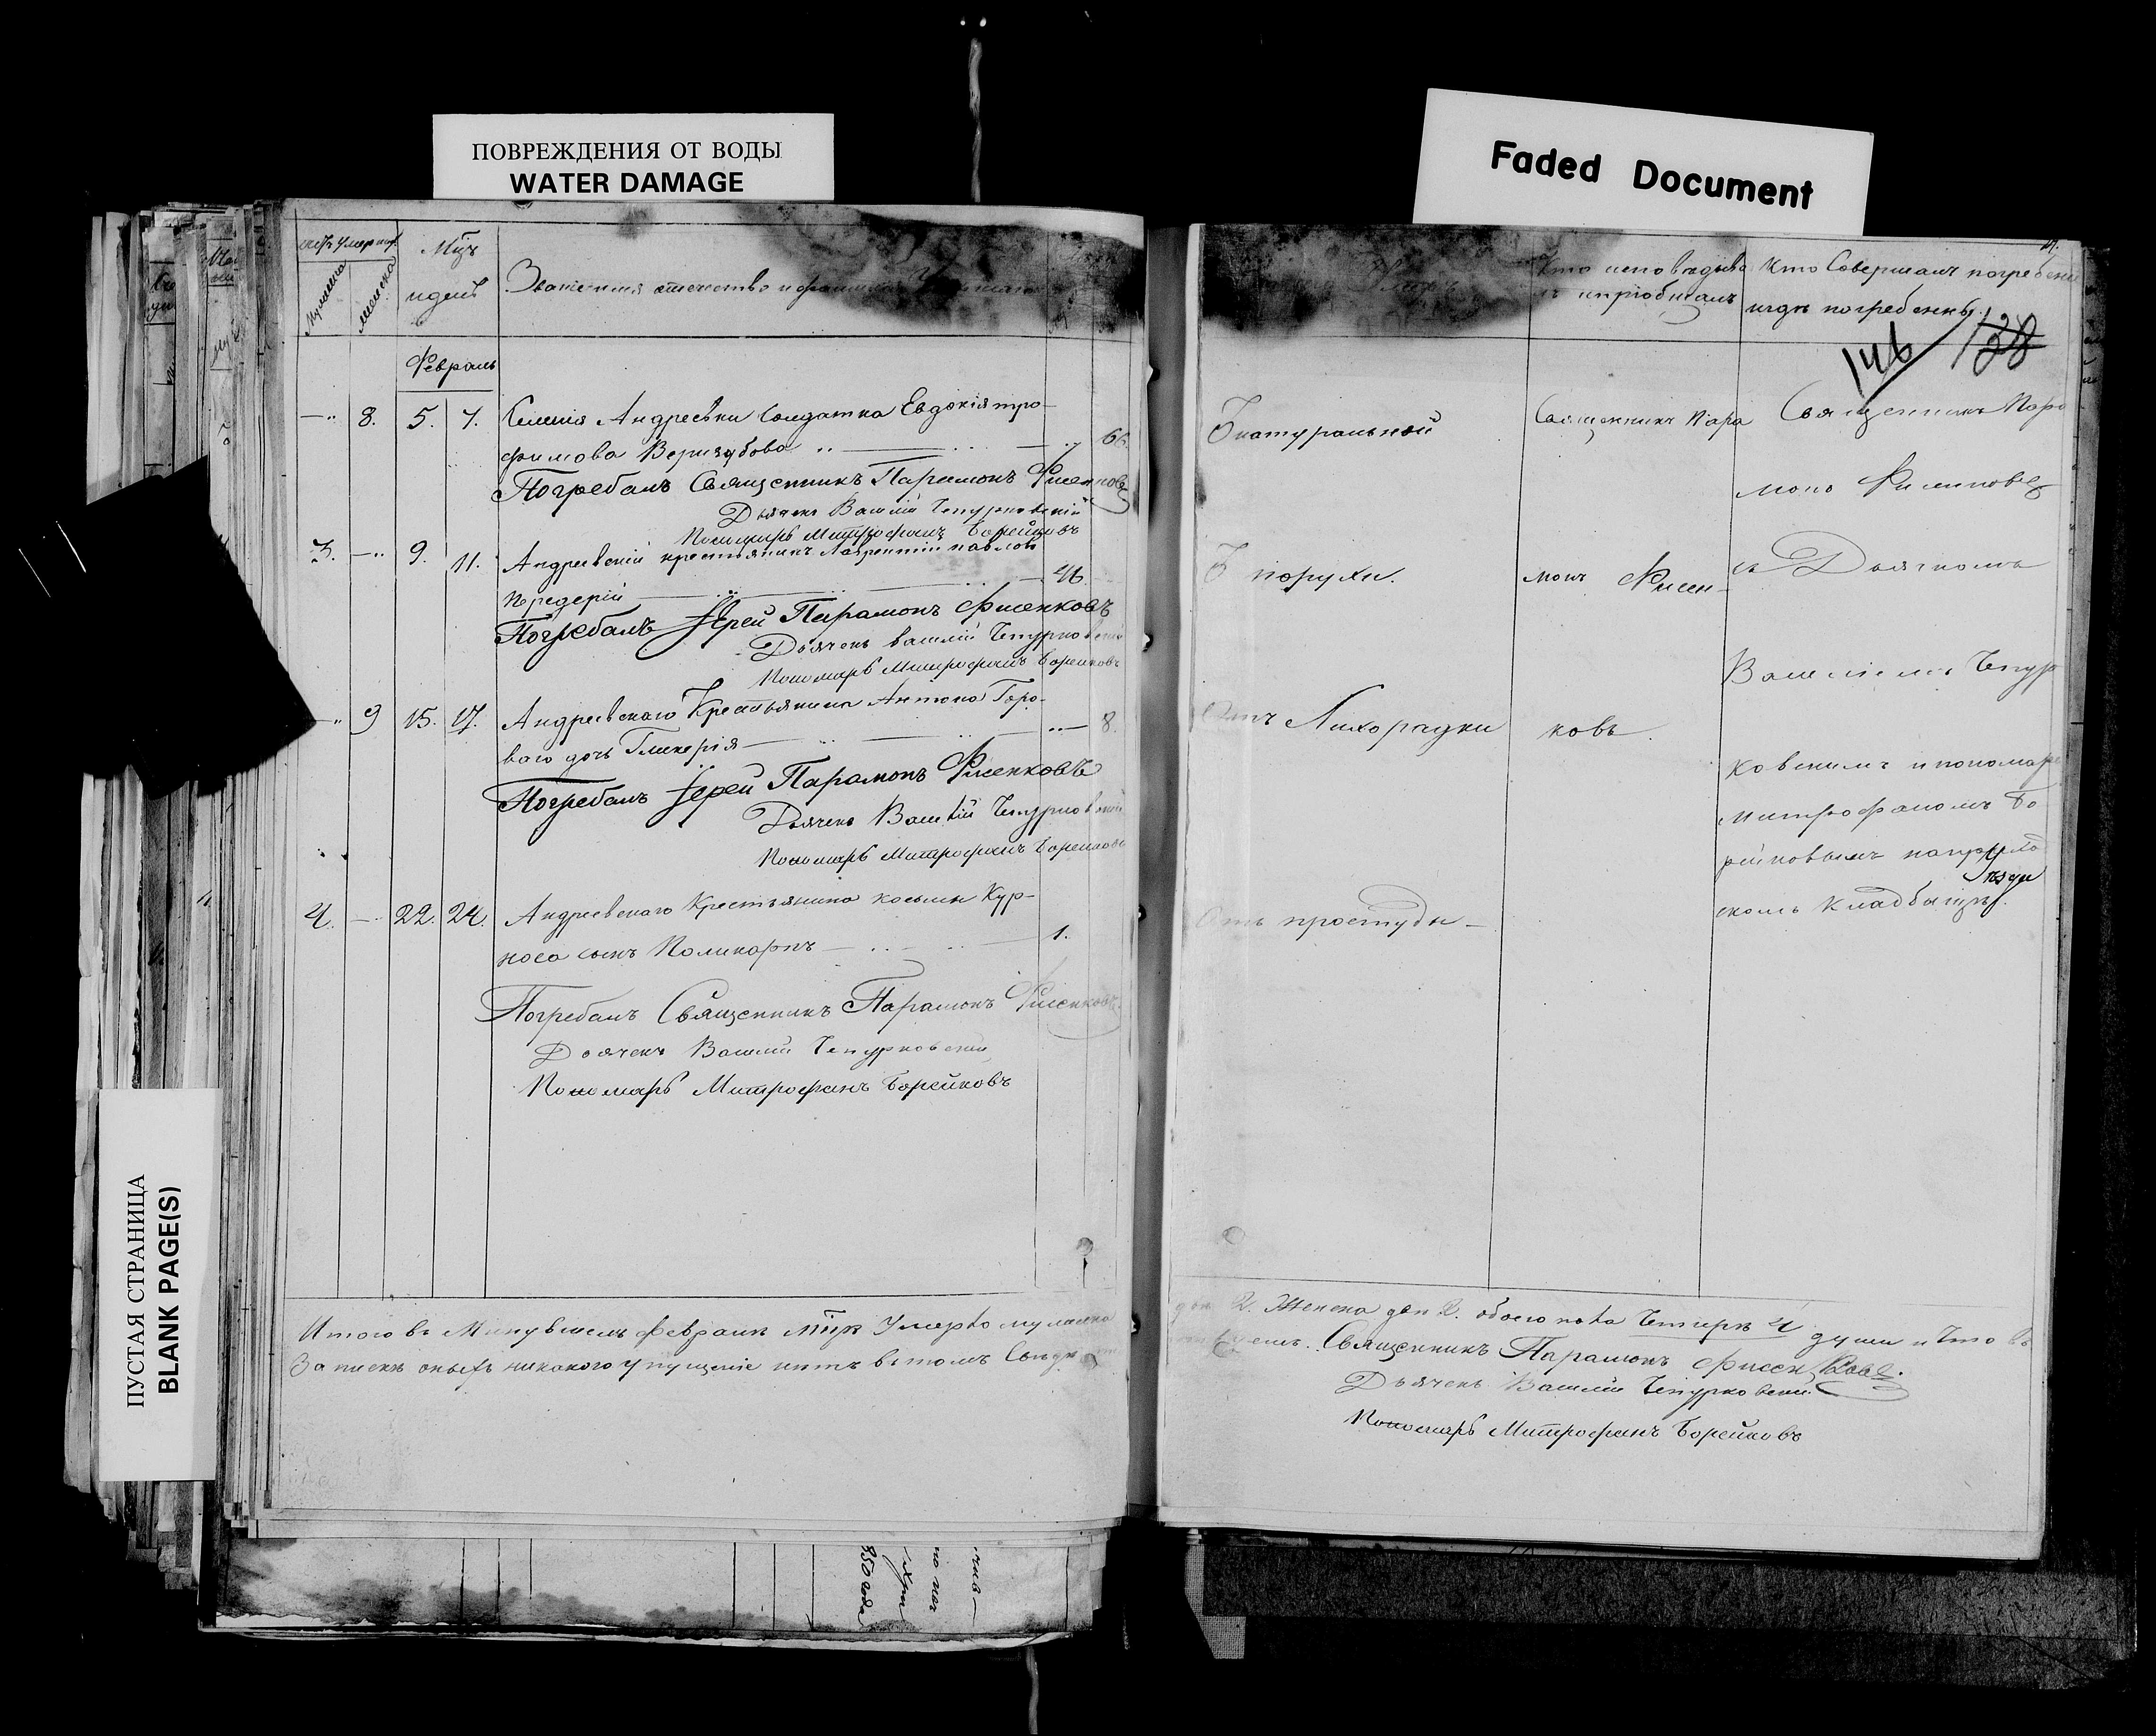 ПОВРЕЖДЕНИЯ ОТ ВОДЫ
WATER DAMAGE
Faded Document
ПУСТАЯ СТРАНИЦА
BLANK PAGE(S)
Мцъ
и день
Званіе имя отечество и фамилія
Февраль
8. 5. 7. Селенія Андреевки Солдатка Евдокія тро-
фимова Веризубова 66
Погребалъ Священникъ Парамонъ Фисенковъ
Дьячекъ Василій Чепурковскій
Пономарь Митрофанъ Борейковъ
3. 9. 11. Андреевскій крестьянинъ Лаврентій павловъ
Передерій 46
Погребалъ Іерей Парамонъ Фисенковъ
Дьячекъ василій Чепурковскій
Пономарь Митрофанъ Борейковъ
9 15. 17. Андреевскаго Крестьянина Антона Горо-
ваго дочь Гликерія 8.
Погребалъ Іерей Парамонъ Фисенковъ
Дьячекъ Василій Чепурковскій
Пономарь Митрофанъ Борейковъ
4. 22. 24. Андреевскаго Крестьянина косьмы Кур-
носа сынъ Поликарпъ 1.
Погребалъ Священникъ Парамонъ Фисенковъ
Дьячекъ Василій Чепурковскій
Пономарь Митрофанъ Борейковъ
Итого въ Минувшемъ февралѣ мцѣ Умерло мужеска
Записки оныхъ никакого упущенія нѣтъ въ томъ
Кто исповѣдыва
лъ и пріобщалъ
Кто Совершалъ погребеніе
и гдѣ погребены
146 138
Натуральной
Священникъ Пара
Священникъ Пара
моно Фисенковъ
порухи.
монъ Фисен-
съ Дьячкомъ
Василіемъ Чепур
Отъ Лихорадки
ковъ.
ковскимъ и пономаре
митрофаномъ Бо
рейковымъ на
скомъ Кладбищѣ.
Отъ простуды
2. Женска два 2. обоего пола Четыре 4 души и Что въ
Священникъ Парамонъ Фисенковъ.
Дьячекъ Василій Чепурковскій
Пономарь Митрофанъ Борейковъ